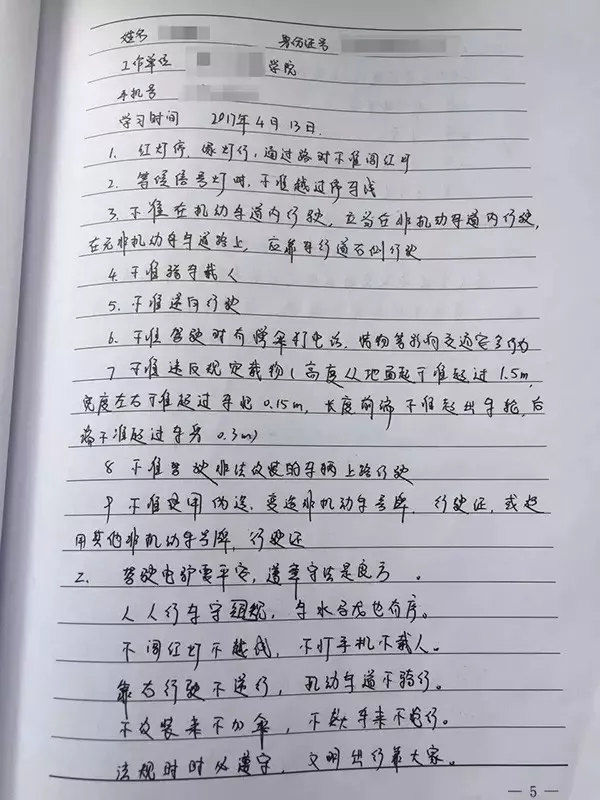 姓名 身份证号
工作单位 学院
手机号
学习时间 2017年4月13日.
1. 红灯停,绿灯行,通过路时不准闯红灯
2. 等候信号灯时,不准越过停车线
3. 不准在机动车道内行驶,应当在非机动车道内行驶,
在无非机动车车道路上,应靠车行道右侧行驶
4. 不准骑车载人
5. 不准逆向行驶
6. 不准驾驶时有撑伞打电话、等影响交通安全行为
7 不准违反规定载物(高度从地面起不准超过1.5m,
宽度左右不准超过车把0.15m,长度前端不准超出车轮,后
端不准超过车身0.3m)
8 不准驾驶非法改装的车辆上路行驶
9 不准使用伪造、变造非机动车号牌,行驶证,或使
用其他非机动车号牌,行驶证
2. 驾驶电驴需平安,遵章守法是良方。
人人行车守规,车水马龙也有序。
不闯红灯不越线,不打手机不载人。
靠右行驶不逆行,机动车道不骑行。
不改装来不加伞,不飙车来不骑行。
法规时时必遵守,文明出行靠大家。
— 5 —